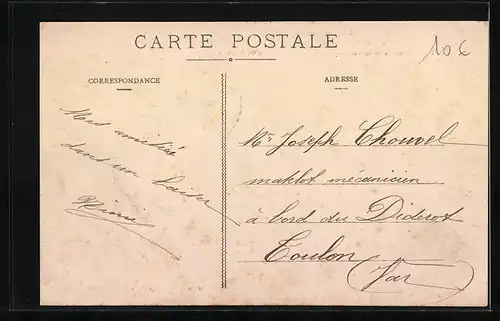 CARTE POSTALE
10€
CORRESPONDANCE
ADRESSE
Mes amitiés
dans un baiser
Mr Joseph Chouvel
matelot mécanicien
à bord du Diderot
Toulon
(Var)